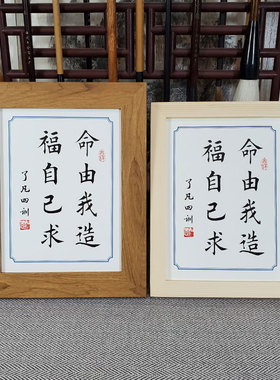 命由我造
福自己求
了凡四训
命由我造
福自己求
了凡四训